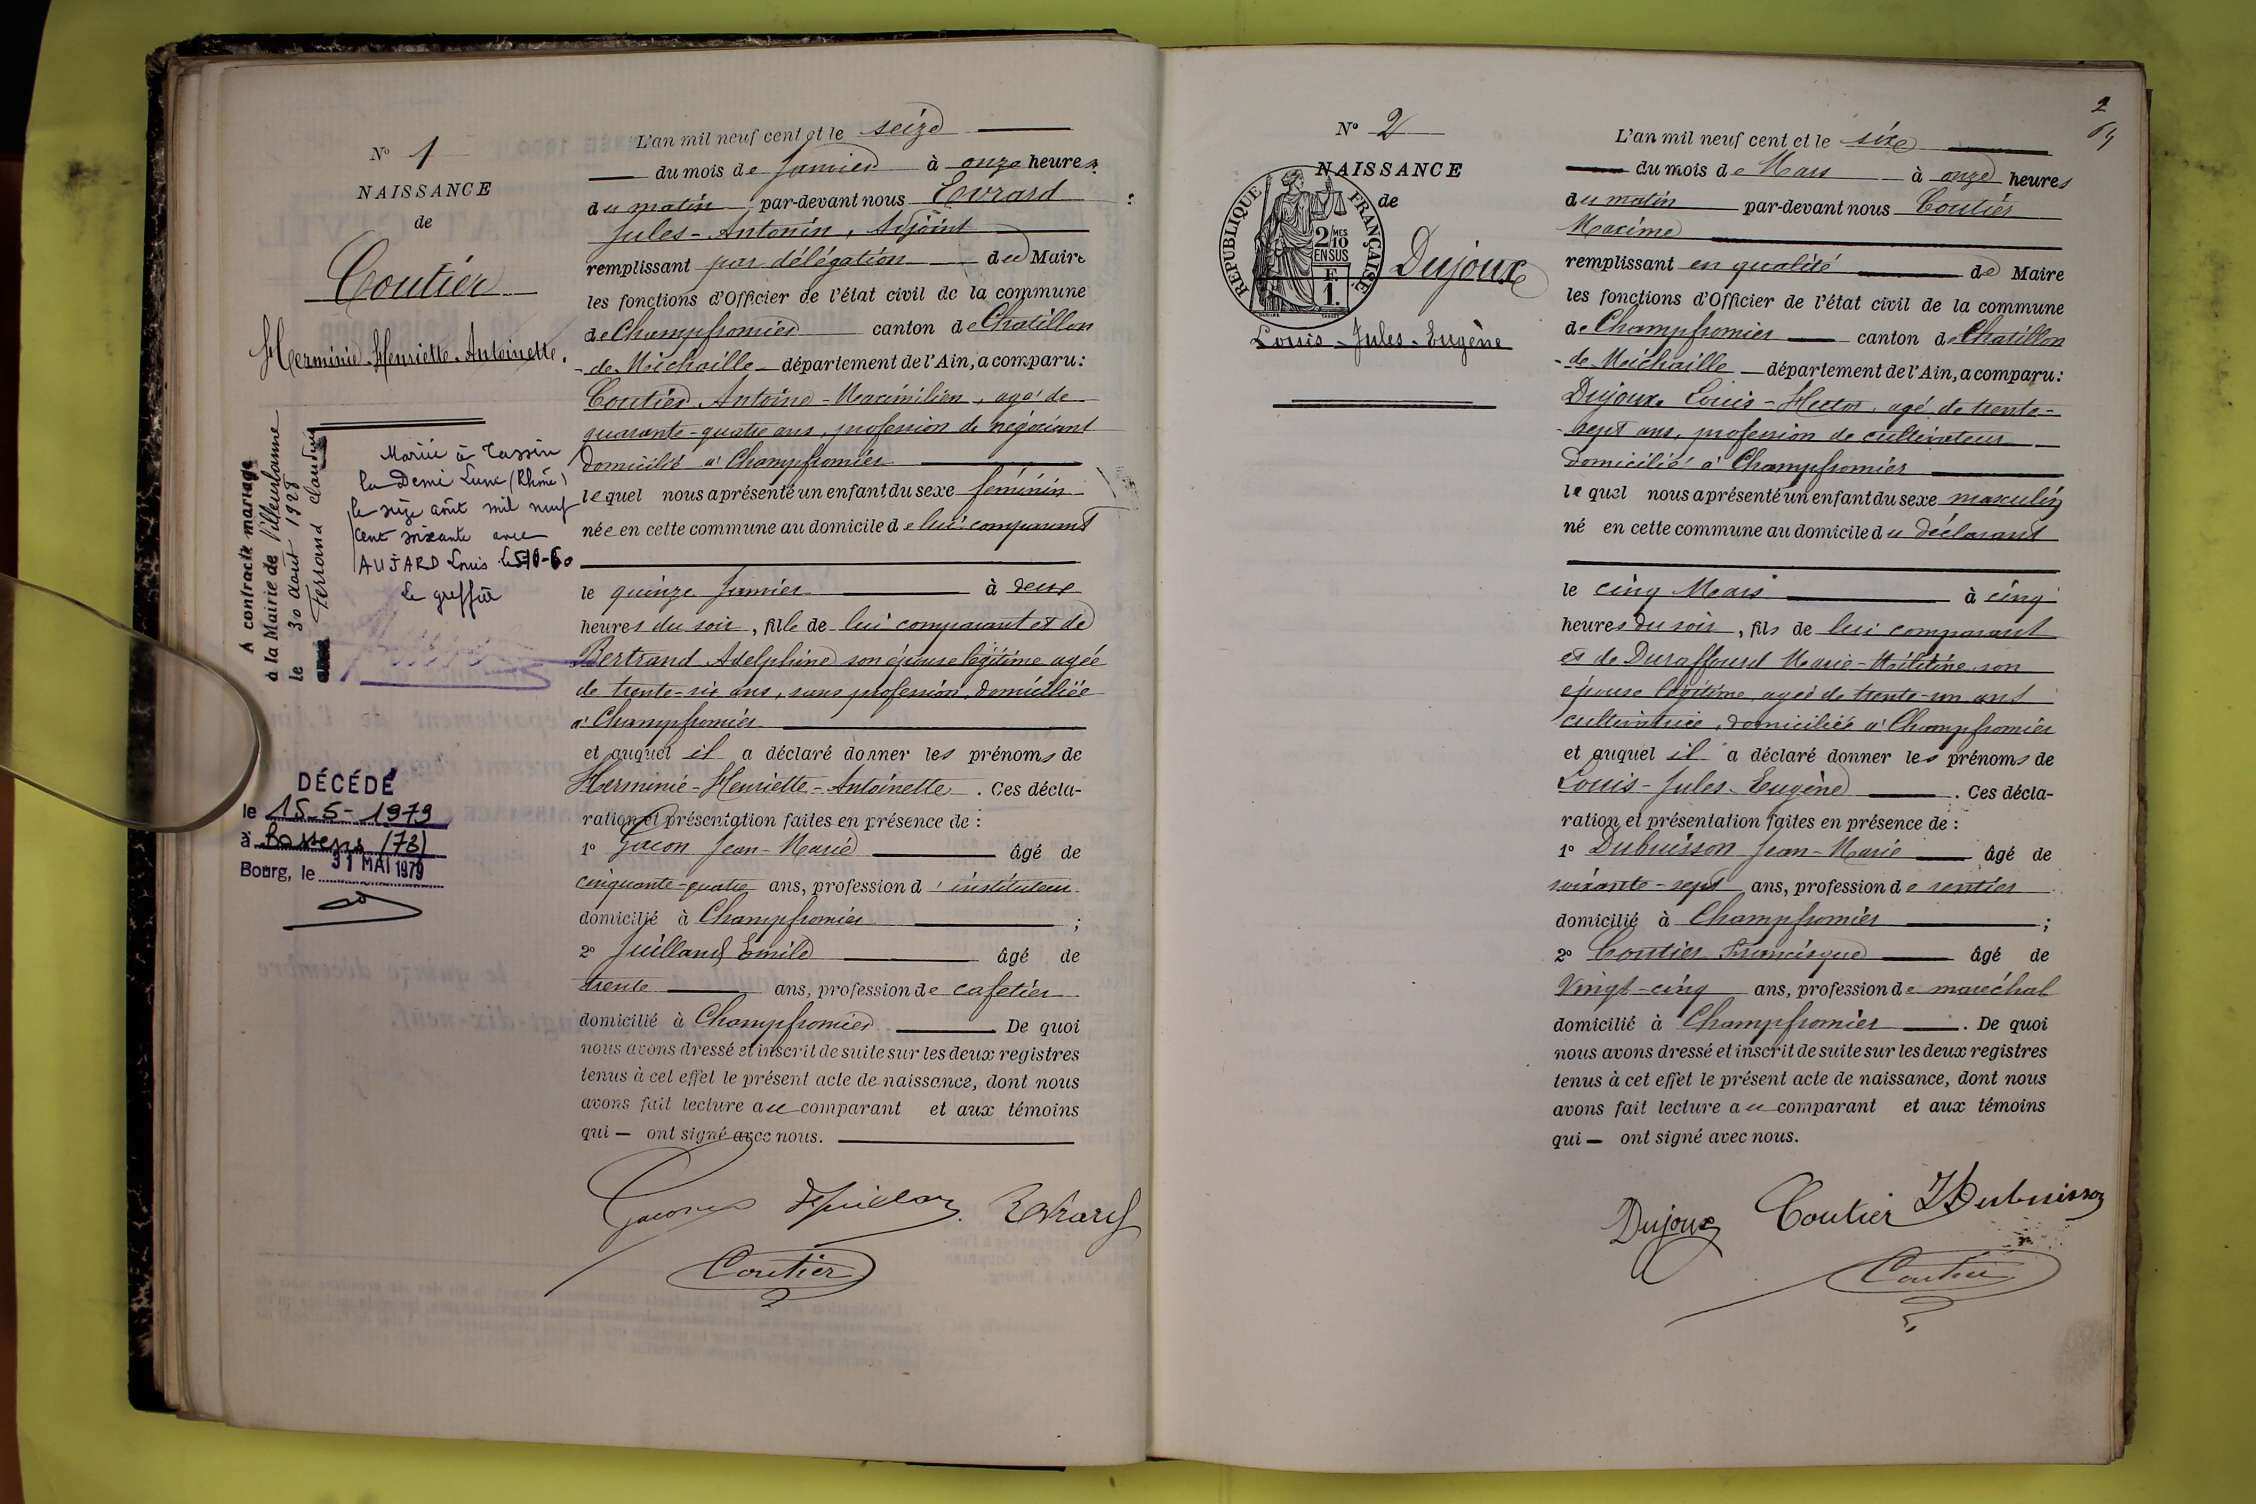 N° 1
NAISSANCE
de
Coutier
Herminie-Henriette-Antoinette.
A contracté mariage
à la Mairie de Villeurbanne
le 30 Aout 1928
Ferrand Claudius
Mariée à Tassin
la Demi Lune (Rhône)
le seize août mil neuf
cent soixante avec
AUJARD Louis
Le greffier
DÉCÉDÉ
le 15-5-1979
à Bassens (73)
Bourg, le 31 MAI 1979
L'an mil neuf cent et le seize
du mois de Janvier à onze heures
du matin par-devant nous Evrard
Jules-Antonin, Adjoint
remplissant par délégation du Maire
les fonctions d'Officier de l'état civil de la commune
de Champfromier canton de Chatillon
-de-Michaille département de l'Ain, a comparu:
Coutier Antoine-Maximilien, agé de
quarante-quatre ans, profession de négociant
domicilié à Champfromier
lequel nous a présenté un enfant du sexe féminin
née en cette commune au domicile de lui comparant
le quinze Janvier à deux
heures du soir, fille de lui comparant et de
Bertrand Adelphine son épouse légitime agée
de trente-six ans, sans profession, domiciliée
à Champfromier
et auquel il a déclaré donner les prénoms de
Herminie-Henriette-Antoinette. Ces décla-
ration et présentation faites en présence de:
1° Gacon Jean-Marie âgé de
cinquante-quatre ans, profession d'instituteur
domicilié à Champfromier ;
2° Juilland Emile âgé de
trente ans, profession de cafetier
domicilié à Champfromier De quoi
nous avons dressé et inscrit de suite sur les deux registres
tenus à cet effet le présent acte de naissance, dont nous
avons fait lecture au comparant et aux témoins
qui — ont signé avec nous.
Evrard
Coutier
2
N° 2
NAISSANCE
de
RÉPUBLIQUE FRANÇAISE
2/10
MES
EN SUS
F.
1.
Dujoux
Louis-Jules-Eugène
L'an mil neuf cent et le six
du mois de Mars à onze heures
du matin par-devant nous Coutier
Maxime
remplissant en qualité de Maire
les fonctions d'Officier de l'état civil de la commune
de Champfromier canton de Chatillon
-de-Michaille département de l'Ain, a comparu:
Dujoux Louis-Hector, agé de trente-
-sept ans, profession de cultivateur
domicilié à Champfromier
lequel nous a présenté un enfant du sexe masculin
né en cette commune au domicile du déclarant
le cinq Mars à cinq
heures du soir, fils de lui comparant
et de Duraffourd Marie-Mélitine son
épouse légitime, agée de trente-un ans
cultivatrice, domiciliée à Champfromier
et auquel il a déclaré donner les prénoms de
Louis-Jules-Eugène. Ces décla-
ration et présentation faites en présence de:
1° Dubuisson Jean-Marie âgé de
soixante-sept ans, profession de rentier
domicilié à Champfromier ;
2° Coutier Francisque âgé de
Vingt-cinq ans, profession de maréchal
domicilié à Champfromier. De quoi
nous avons dressé et inscrit de suite sur les deux registres
tenus à cet effet le présent acte de naissance, dont nous
avons fait lecture au comparant et aux témoins
qui — ont signé avec nous.
Dujoux Coutier Dubuisson
Coutier